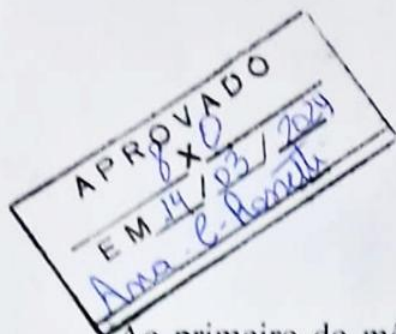 APROVADO
8 X 0
EM 14 / 03 / 2024
Ana
Ao primeiro de